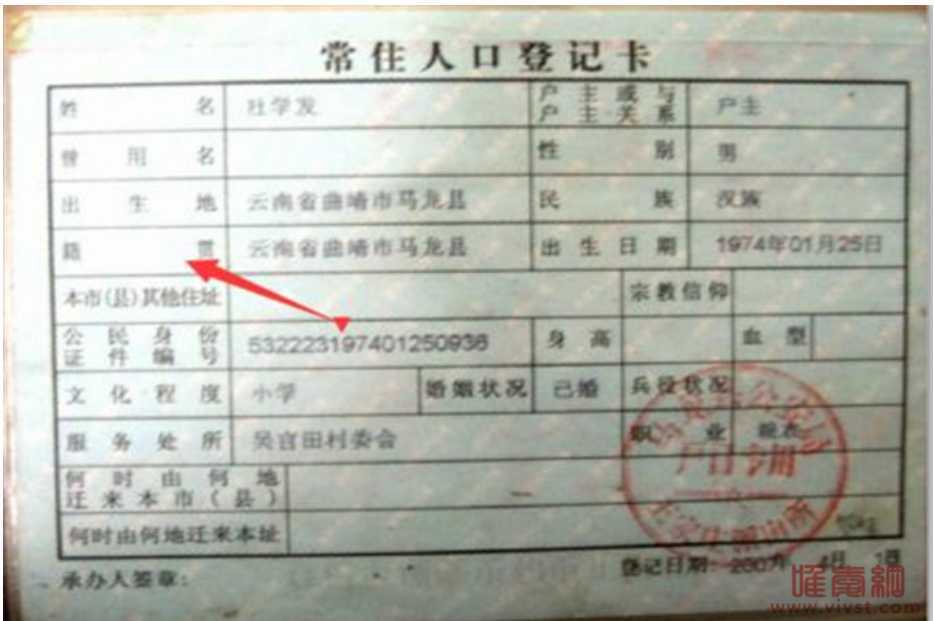 常住人口登记卡
姓名 杜学发 户主或与户主关系 户主
曾用名 性别 男
出生地 云南省曲靖市马龙县 民族 汉族
籍贯 云南省曲靖市马龙县 出生日期 1974年01月25日
本市(县)其他住址 宗教信仰
公民身份证件编号 532223197401250936 身高 血型
文化程度 小学 婚姻状况 已婚 兵役状况
服务处所 吴官田村委会 职业
何时由何地迁来本市(县)
何时由何地迁来本址
承办人签章: 登记日期: 2007年 4月 1日
户口专用
唯意網
www.vivst.com